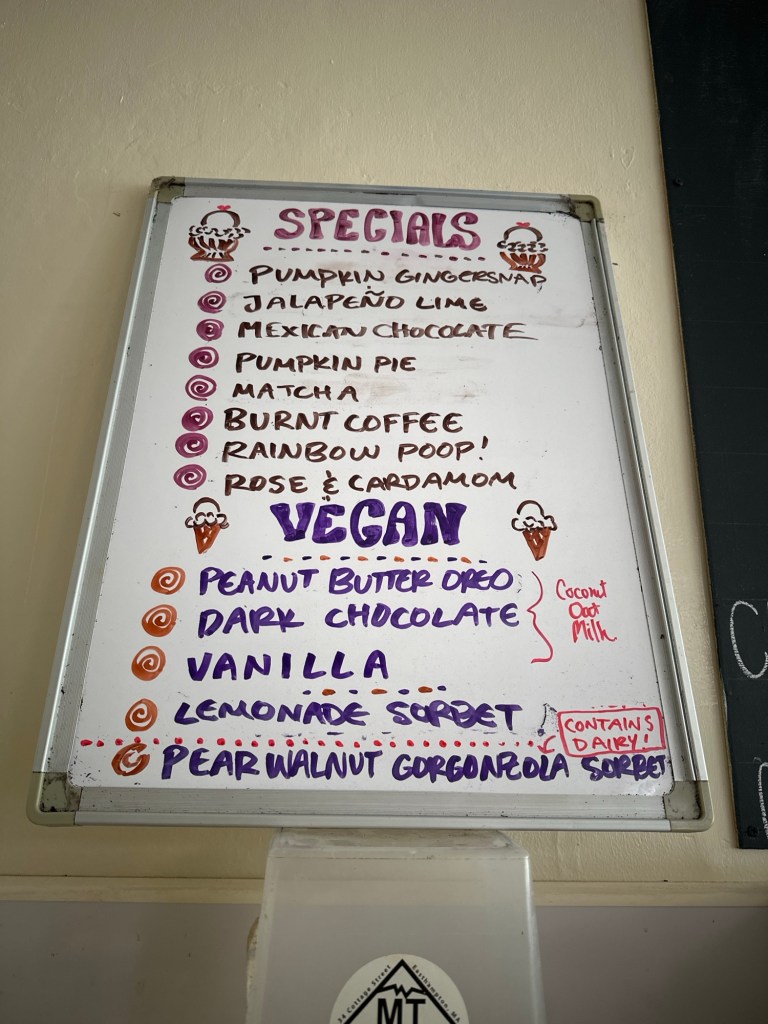 SPECIALS
PUMPKIN GINGERSNAP
JALAPEÑO LIME
MEXICAN CHOCOLATE
PUMPKIN PIE
MATCHA
BURNT COFFEE
RAINBOW POOP!
ROSE & CARDAMOM
VEGAN
PEANUT BUTTER OREO
DARK CHOCOLATE
VANILLA
Coconut
Oat
Milk
LEMONADE SORBET
CONTAINS
DAIRY!
PEAR WALNUT GORGONZOLA SORBET
34 Cottage Street Easthampton, MA
MT